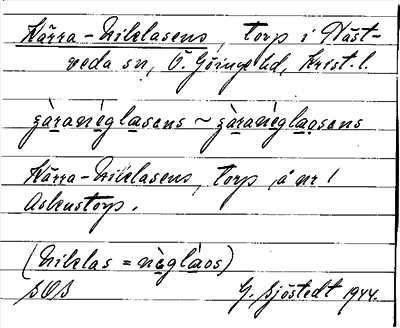 Kärra-Niklasens, torp i Näst-
veda sn, Ö. Göinge hd, Krist. l.
çàranèglasens ~ çàranèglaosens
Kärra-Niklasens, torp å nr 1
Askustorp.
(Niklas = nèglàos)
SOS G. Sjöstedt 1944.